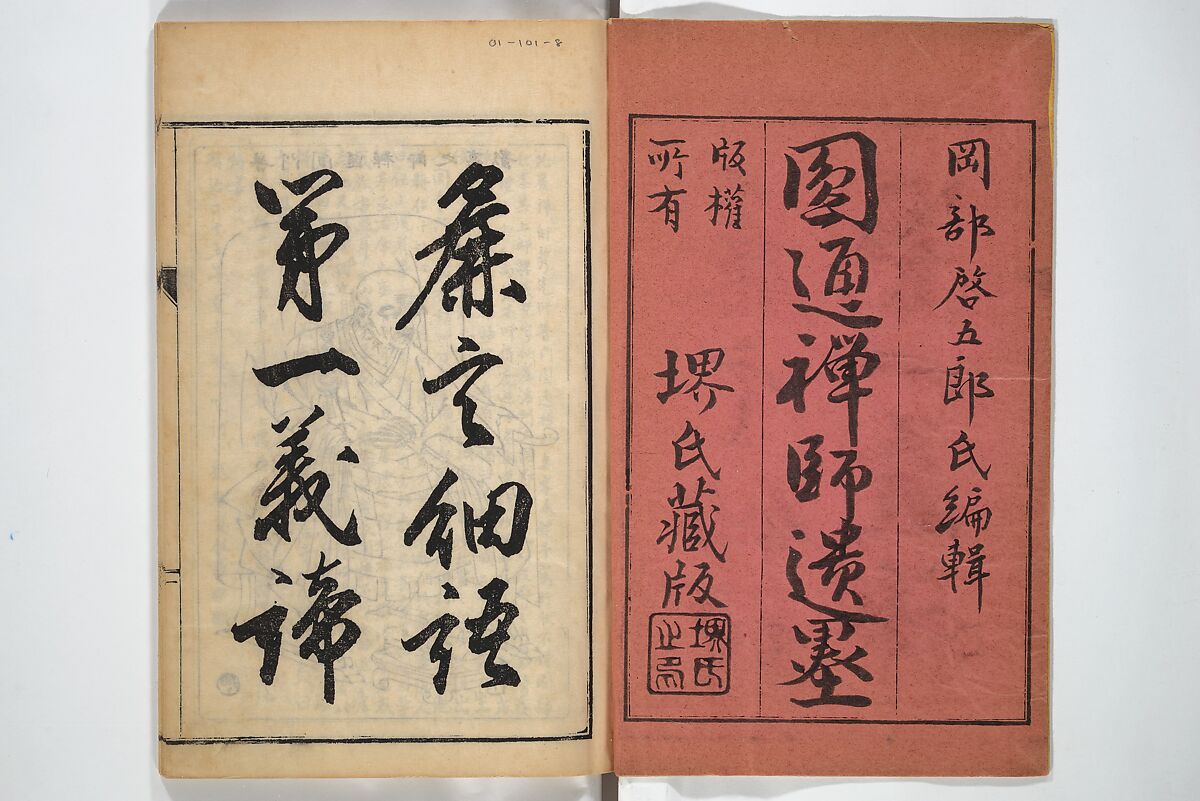 01-101-8
岡部啓五郎氏編輯
圓通禅師遺墨
版權
所有
堺氏藏版
堺氏
之印
麁言細語
第一義諦